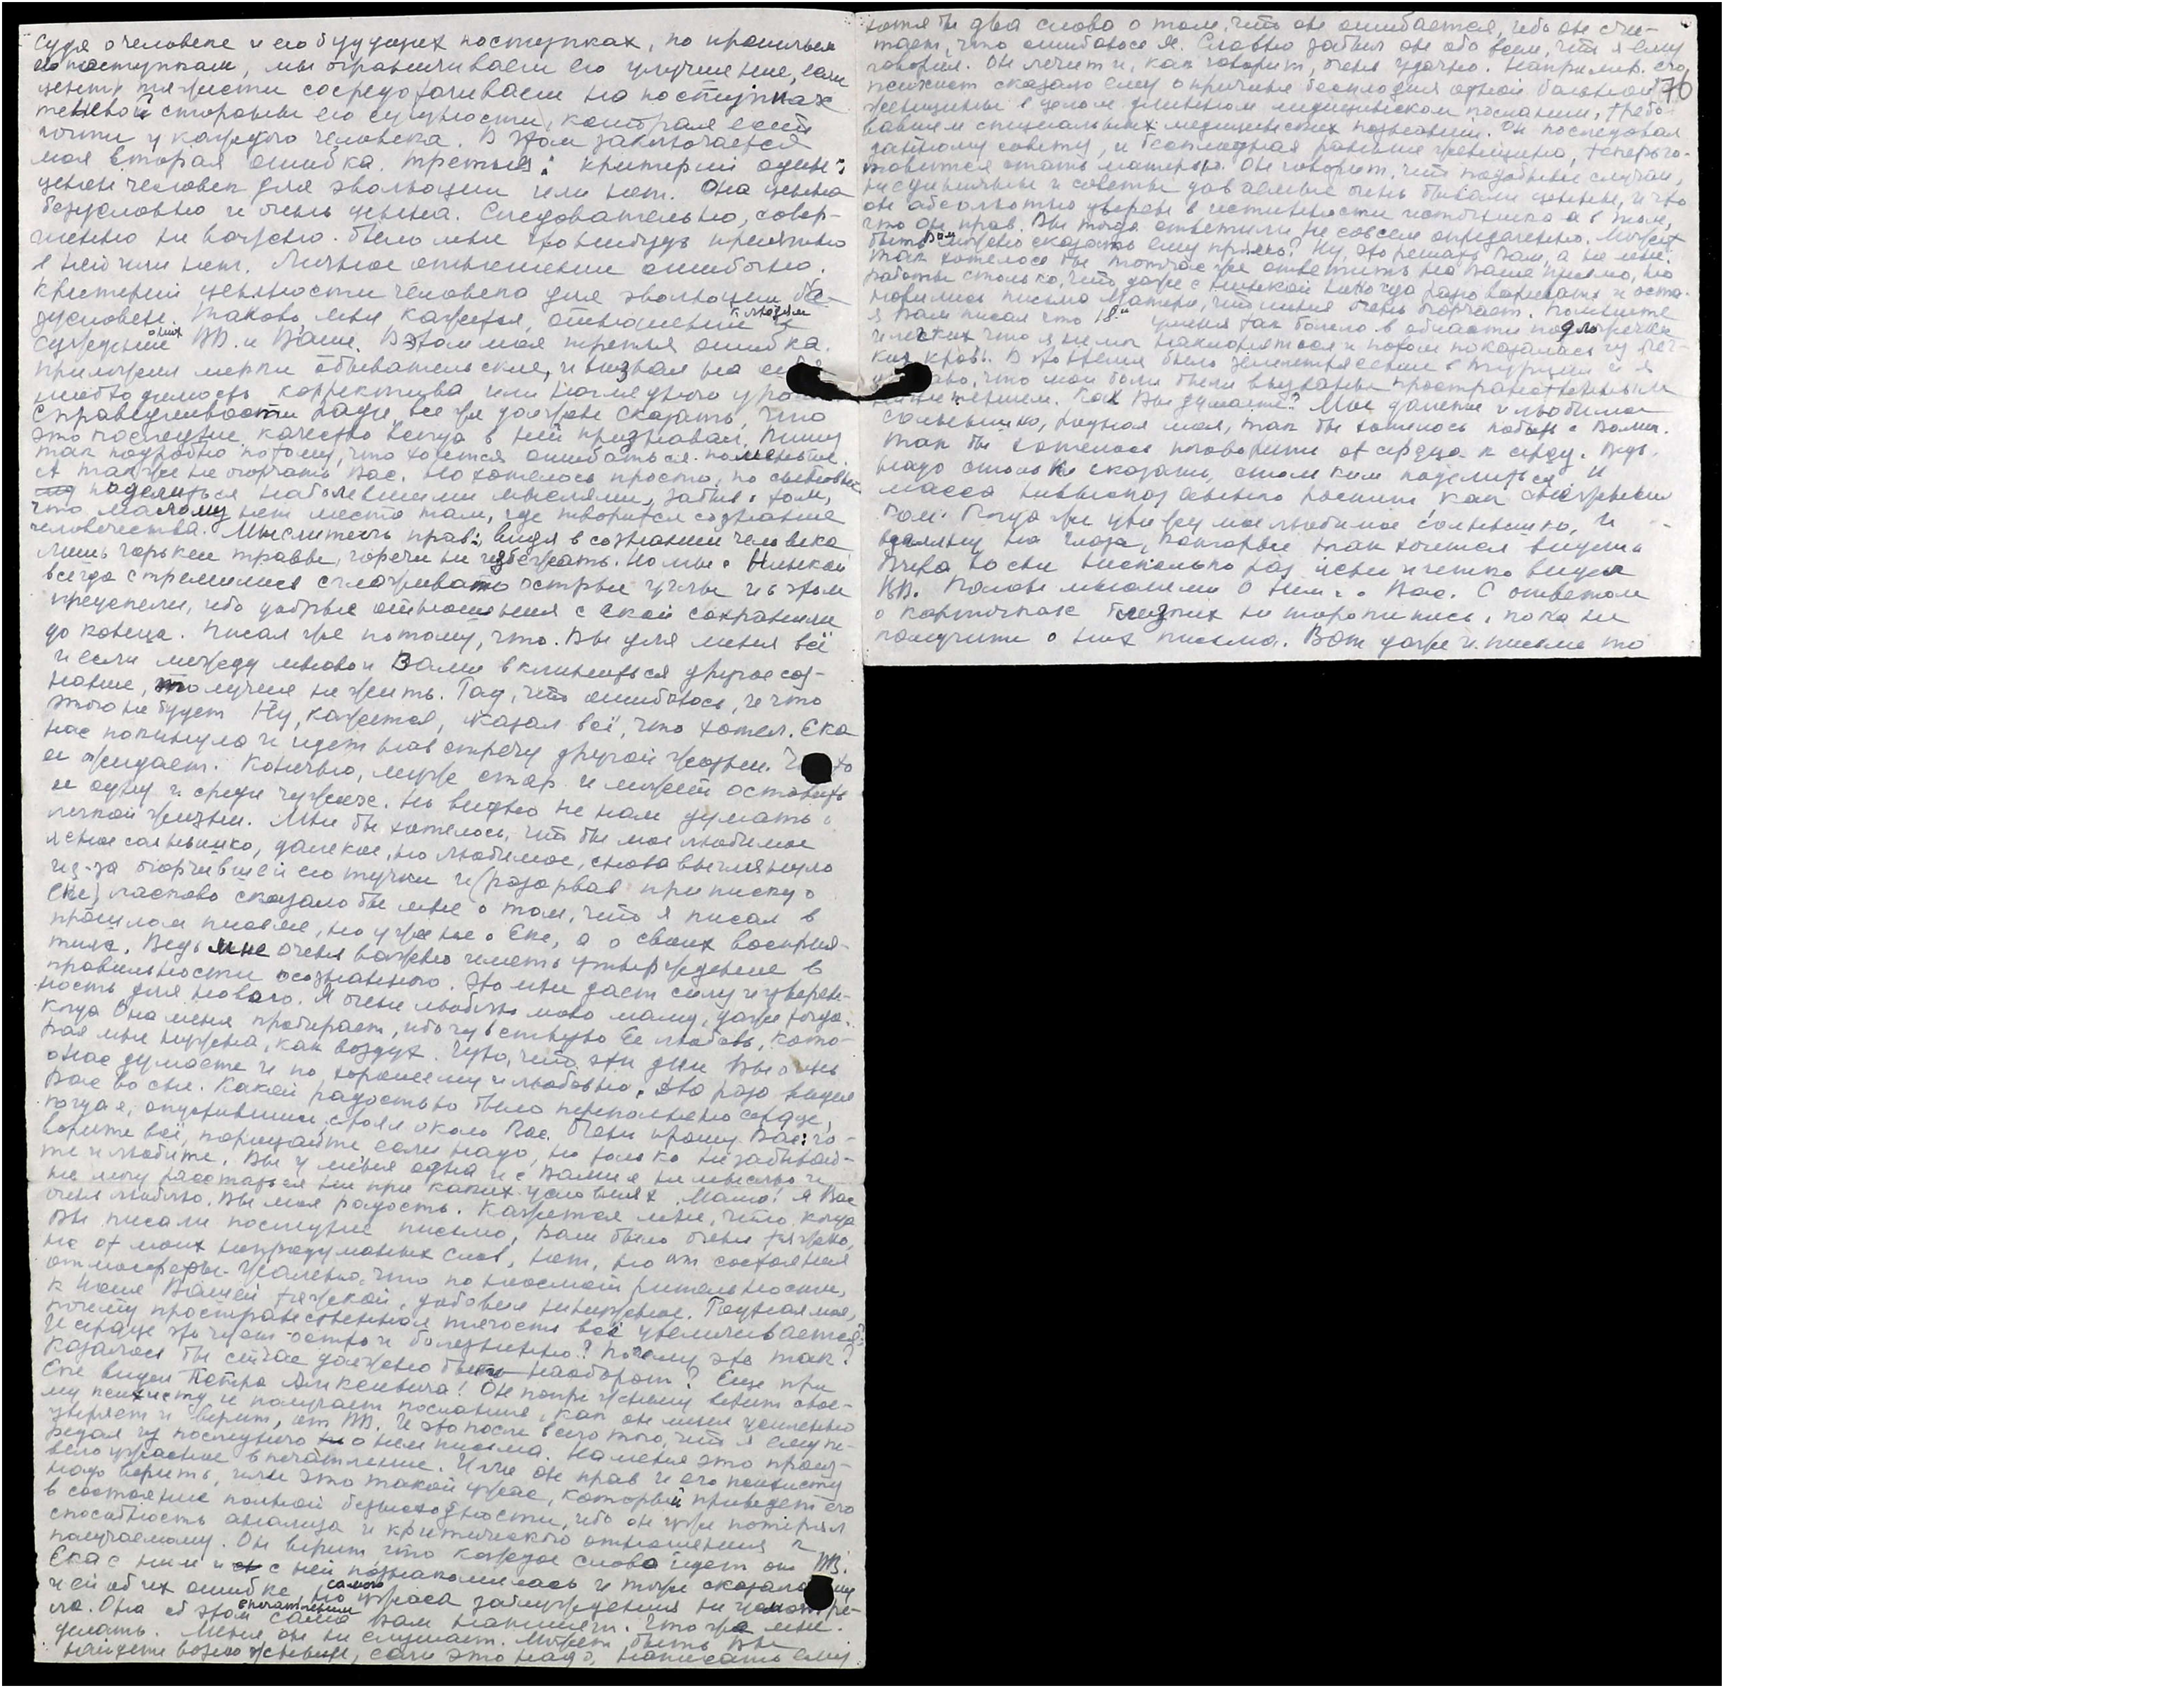 Судя о человеке и его будущих поступках, по прошлым
его поступкам, мы ограничиваем его улучшение, если
центр тяжести сосредотачиваем на поступках
теневой стороны его сущности, которая есть
почти у каждого человека. В этом заключается
моя вторая ошибка. Третья: критерий один:
ценен человек для эволюции или нет. Она ценна
безусловно и очень ценна. Следовательно, совер-
шенно не важно было мне что нибудь приятно
в ней или нет. Личное отношение ошибочно.
Критерий ценности человека для эволюции бе-
зусловен. Таково мне кажется, отношение к людям и
суждение о них ВВ. и Ваше. В этом моя третья ошибка.
Приложил мерки обывательские, и вызвал на
необходимость корректива или наглядного
Справедливости ради, все же должен сказать, что
это последнее качество всегда в ней признавал. Пишу
так подробно потому, что хочется ошибаться поменьше.
А также не огорчать Вас. Но хотелось просто, по сыновьи
поделиться наболевшими мыслями, забыв о том,
что малому нет места там, где творится сознание
человечества. Мыслитель прав, видя в сознании человека
лишь горькие травы, горечи не избежать. Но мы с Нинкой
всегда стремились сглаживать острые углы и в этом
преуспели, ибо добрые отношения с Екой сохранили
до конца. Писал же потому, что Вы для меня всё
и если между мною и Вами вклинится другое соз-
нание, то лучше не жить. Рад, что ошибаюсь, и что
этого не будет. Ну, кажется, сказал всё, что хотел. Ека
нас покинула и идет навстречу другой жизни. Что то
ее ожидает. Конечно, муж стар и может оставить
ее одну и среди чужих. Но видно не нам думать о
легкой жизни. Мне бы хотелось, что бы мое любимое
ясное солнышко, далекое, но любимое, снова выглянуло
из-за огорчившей его тучки и (разорвав приписку о
Еке) ласково сказало бы мне о том, что я писал в
прошлом письме, но уже не о Еке, а о своих восприя-
тиях. Ведь мне очень важно иметь утверждение в
правильности осознанного. Это мне дает силу и уверен-
ность для нового. Я очень люблю мою маму, даже тогда,
когда Она меня пробирает, ибо чувствую Ее любовь, кото-
рая мне нужна, как воздух. Чую, что эти дни Вы очень
о нас думаете и по хорошему и любовно. Два раза видел
Вас во сне. Какой радостью было переполнено сердце,
когда я, опустившись, стоял около Вас. Очень прошу Вас: го-
ворите всё, порицайте если надо, но только не забывай-
те и любите. Вы у меня одна и с Вами я не мыслю и
не могу расстаться ни при каких условиях. Мама! Я Вас
очень люблю. Вы моя радость. Кажется мне, что когда
Вы писали последнее письмо, Вам было очень тяжко,
не от моих непродуманных слов, нет, но от состояния
атмосферы. Жалею, что по неосмотрительности,
к ноше Вашей тяжкой, добавил ненужное. Родная моя,
почему пространственная тягость всё увеличивается?
И сердце это чует остро и болезненно? Почему это так?
Казалось бы сейчас должно быть наоборот? Еще при
Еке видел Петра Алексеевича! Он попрежнему верит свое-
му психисту и получает послания, как он меня усиленно
уверяет и верит, от ВВ. И это после всего того, что я ему пе-
редал из последнего о нем письма. На меня это произ-
вело ужасное впечатление. Или он прав и его психисту
надо верить, или это такой ужас, который приведет его
в состояние полной безысходности, ибо он уже потерял
способность анализа и критического отношения к
получаемому. Он верит что каждое слово идет от ВВ.
Ека с ним и с ней познакомилась и тоже сказала ему
и ей об их ошибке, но самого ужаса заблуждения не
ла. Она об этом впечатлении сама Вам напишет. Что же мне
делать. Меня он не слушает. Может быть Вы
найдете возможным, если это надо, написать ему
хотя бы два слова о том, что он ошибается, ибо он счи-
тает, что ошибаюсь я. Словно забыл он обо всем, что я ему
говорил. Он лечит и, как говорит, очень удачно. Например, его
психист сказало ему о причине бесплодия одной больной 76
женщины в целом длинном медицинском послании, требо-
вавшем специальных медицинских познаний. Он последовал
данному совету, и бесплодная раньше женщина, теперь го-
товится стать матерью. Он говорит, что подобные случаи,
не единичные и советы даваемые очень бывали ценные, и что
он абсолютно уверен в истинности источника и в том,
что он прав. Вы тогда ответили не совсем определенно. Может
быть Вам можно сказать ему прямо? Ну, это решать Вам, а не мне.
Так хотелось бы тотчас же ответить на Ваше письмо, но
работы столько, что даже с Нинкой некогда разговаривать и оста-
новились письма Матери, что меня очень огорчает. Помните
я Вам писал что 18го у меня так болело в области
и легких что я не мог наклоняться и потом показалась из лег-
ких кровь. В это время было землетрясение в Турции и я
думаю, что мои боли были вызваны пространственным
напряжением. Как Вы думаете? Мое далекое и любимое
солнышко, родная моя, так бы хотелось побыть с Вами.
Так бы хотелось поговорить от сердца к сердцу. Ведь
надо столько сказать, столь ким поделиться. И
масса невысказанного растет, как снежный
ком. Когда же увижу мое любимое солнышко, и
взгляну на глаза, которые так хочется видеть.
Вчера во сне несколько раз ясно и четко видел
ВВ. Полон мыслями о Нем и о Вас. С ответом
о карточках близких не торопитесь, пока не
получите о них письма. Вот даже и письмо то